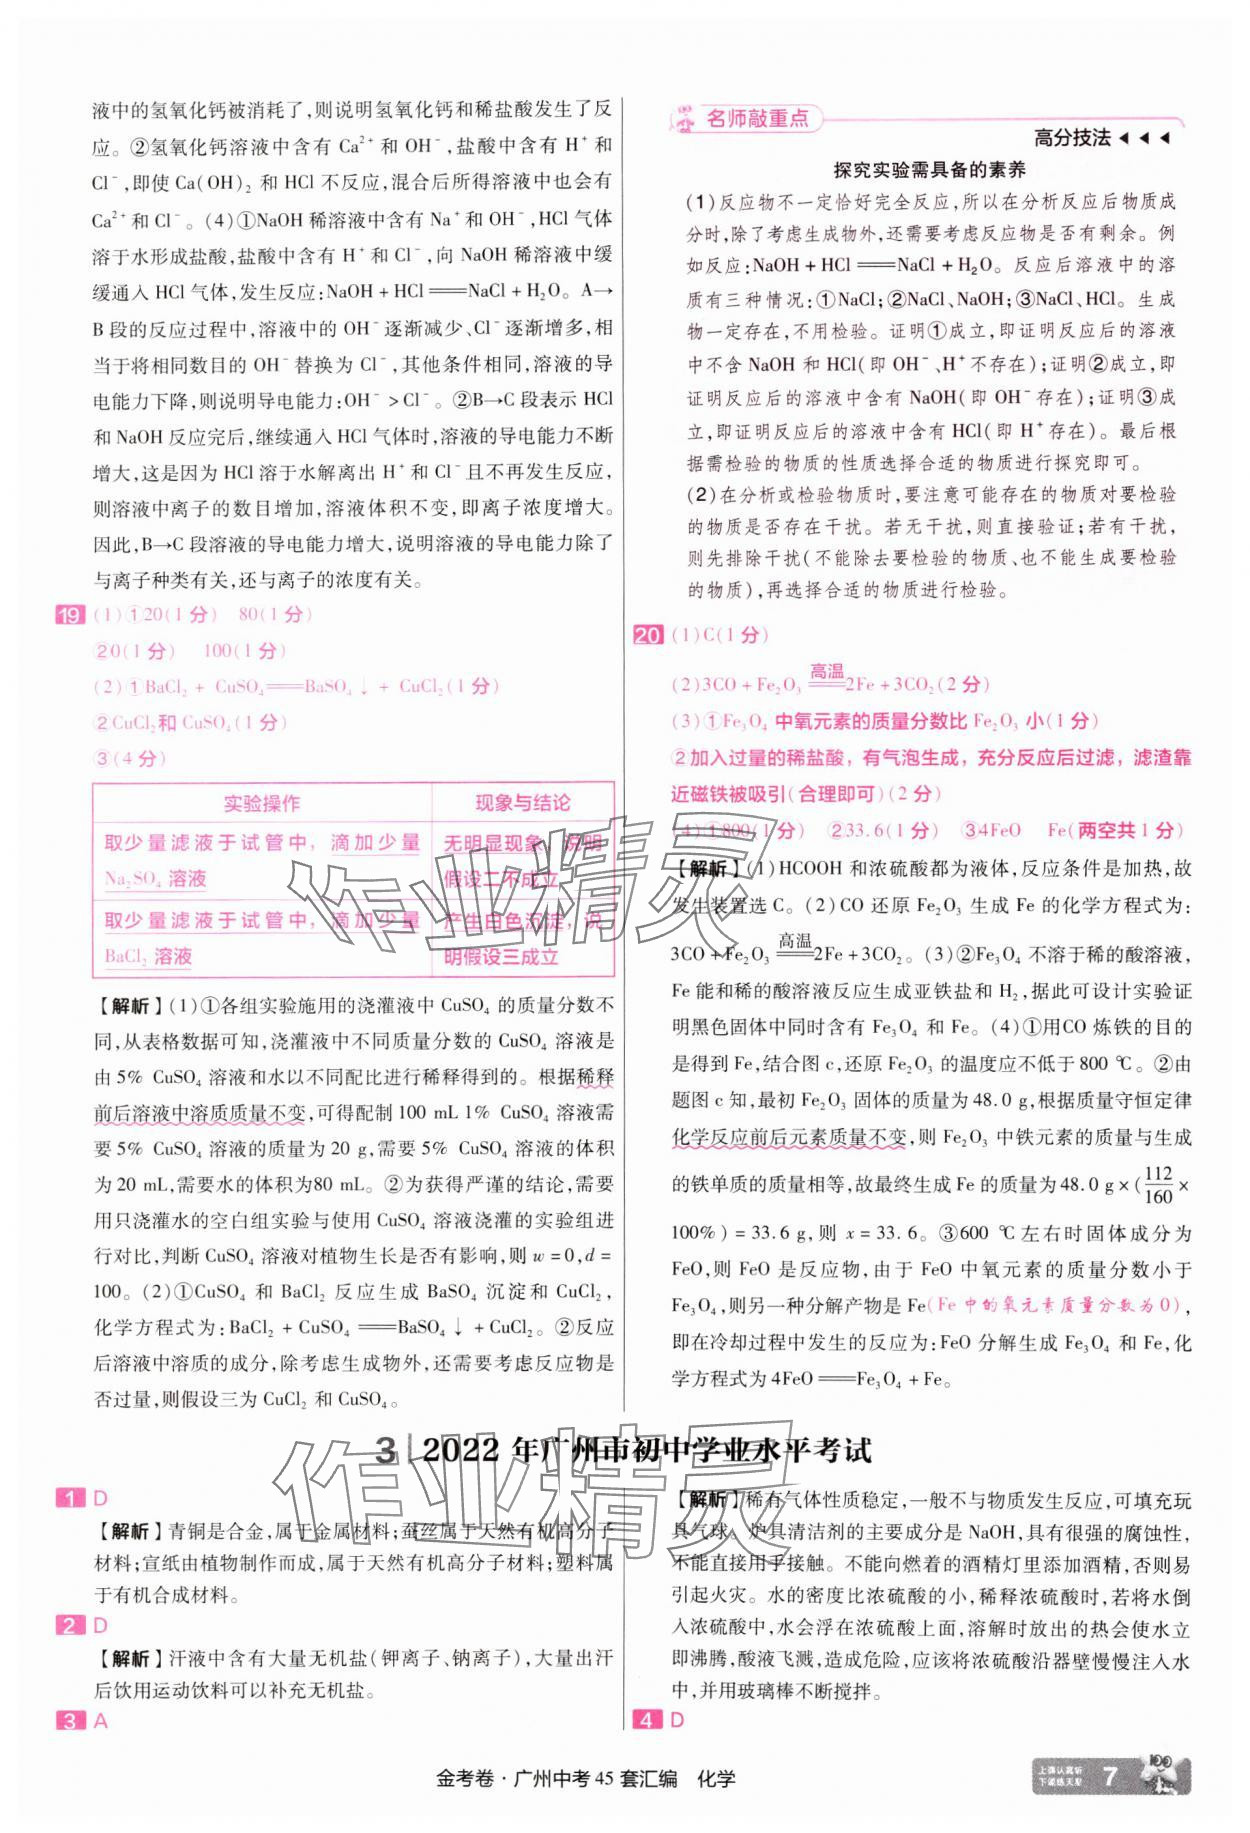 液中的氢氧化钙被消耗了,则说明氢氧化钙和稀盐酸发生了反
应。②氢氧化钙溶液中含有 Ca²⁺ 和 OH⁻,盐酸中含有 H⁺ 和
Cl⁻,即使 Ca(OH)₂ 和 HCl 不反应,混合后所得溶液中也会有
Ca²⁺ 和 Cl⁻。(4)①NaOH 稀溶液中含有 Na⁺ 和 OH⁻,HCl 气体
溶于水形成盐酸,盐酸中含有 H⁺ 和 Cl⁻,向 NaOH 稀溶液中缓
缓通入 HCl 气体,发生反应:NaOH + HCl ══ NaCl + H₂O。A→
B 段的反应过程中,溶液中的 OH⁻ 逐渐减少、Cl⁻ 逐渐增多,相
当于将相同数目的 OH⁻ 替换为 Cl⁻,其他条件相同,溶液的导
电能力下降,则说明导电能力:OH⁻ > Cl⁻。②B→C 段表示 HCl
和 NaOH 反应完后,继续通入 HCl 气体时,溶液的导电能力不断
增大,这是因为 HCl 溶于水解离出 H⁺ 和 Cl⁻ 且不再发生反应,
则溶液中离子的数目增加,溶液体积不变,即离子浓度增大。
因此,B→C 段溶液的导电能力增大,说明溶液的导电能力除了
与离子种类有关,还与离子的浓度有关。
19 (1)①20(1 分) 80(1 分)
②0(1 分) 100(1 分)
(2)①BaCl₂ + CuSO₄ ══ BaSO₄↓ + CuCl₂(1 分)
②CuCl₂和 CuSO₄(1 分)
③(4 分)
实验操作 现象与结论
取少量滤液于试管中,滴加少量 无明显现象,说明
Na₂SO₄ 溶液 假设二不成立
取少量滤液于试管中,滴加少量 产生白色沉淀,说
BaCl₂ 溶液 明假设三成立
【解析】(1)①各组实验施用的浇灌液中 CuSO₄ 的质量分数不
同,从表格数据可知,浇灌液中不同质量分数的 CuSO₄ 溶液是
由 5% CuSO₄ 溶液和水以不同配比进行稀释得到的。根据稀释
前后溶液中溶质质量不变,可得配制 100 mL 1% CuSO₄ 溶液需
要 5% CuSO₄ 溶液的质量为 20 g,需要 5% CuSO₄ 溶液的体积
为 20 mL,需要水的体积为80 mL。②为获得严谨的结论,需要
用只浇灌水的空白组实验与使用 CuSO₄ 溶液浇灌的实验组进
行对比,判断 CuSO₄ 溶液对植物生长是否有影响,则 w = 0,d =
100。(2)①CuSO₄ 和 BaCl₂ 反应生成 BaSO₄ 沉淀和 CuCl₂,
化学方程式为:BaCl₂ + CuSO₄ ══ BaSO₄↓ + CuCl₂。②反应
后溶液中溶质的成分,除考虑生成物外,还需要考虑反应物是
否过量,则假设三为 CuCl₂ 和 CuSO₄。
名师敲重点
高分技法
探究实验需具备的素养
(1)反应物不一定恰好完全反应,所以在分析反应后物质成
分时,除了考虑生成物外,还需要考虑反应物是否有剩余。例
如反应:NaOH + HCl ══ NaCl + H₂O。反应后溶液中的溶
质有三种情况:①NaCl;②NaCl、NaOH;③NaCl、HCl。生成
物一定存在,不用检验。证明①成立,即证明反应后的溶液
中不含 NaOH 和 HCl(即 OH⁻、H⁺ 不存在);证明②成立,即
证明反应后的溶液中含有 NaOH(即 OH⁻存在);证明③成
立,即证明反应后的溶液中含有 HCl(即 H⁺ 存在)。最后根
据需检验的物质的性质选择合适的物质进行探究即可。
(2)在分析或检验物质时,要注意可能存在的物质对要检验
的物质是否存在干扰。若无干扰,则直接验证;若有干扰,
则先排除干扰(不能除去要检验的物质、也不能生成要检验
的物质),再选择合适的物质进行检验。
20 (1)C(1 分)
(2)3CO + Fe₂O₃ ══高温══ 2Fe + 3CO₂(2 分)
(3)①Fe₃O₄ 中氧元素的质量分数比 Fe₂O₃ 小(1 分)
②加入过量的稀盐酸,有气泡生成,充分反应后过滤,滤渣靠
近磁铁被吸引(合理即可)(2 分)
(4)①800(1 分) ②33.6(1 分) ③4FeO Fe(两空共 1 分)
【解析】(1)HCOOH 和浓硫酸都为液体,反应条件是加热,故
发生装置选 C。(2)CO 还原 Fe₂O₃ 生成 Fe 的化学方程式为:
3CO + Fe₂O₃ ══高温══ 2Fe + 3CO₂。(3)②Fe₃O₄ 不溶于稀的酸溶液,
Fe 能和稀的酸溶液反应生成亚铁盐和 H₂,据此可设计实验证
明黑色固体中同时含有 Fe₃O₄ 和 Fe。(4)①用CO 炼铁的目的
是得到 Fe,结合图 c,还原 Fe₂O₃ 的温度应不低于 800 ℃。②由
题图 c 知,最初 Fe₂O₃ 固体的质量为 48.0 g,根据质量守恒定律
化学反应前后元素质量不变,则 Fe₂O₃ 中铁元素的质量与生成
的铁单质的质量相等,故最终生成 Fe 的质量为 48.0 g × (112/160 ×
100%) = 33.6 g,则 x = 33.6。③600 ℃左右时固体成分为
FeO,则 FeO 是反应物,由于 FeO 中氧元素的质量分数小于
Fe₃O₄,则另一种分解产物是 Fe(Fe 中的氧元素质量分数为 0),
即在冷却过程中发生的反应为:FeO 分解生成 Fe₃O₄ 和 Fe,化
学方程式为 4FeO ══ Fe₃O₄ + Fe。
3 2022 年广州市初中学业水平考试
1 D
【解析】青铜是合金,属于金属材料;蚕丝属于天然有机高分子
材料;宣纸由植物制作而成,属于天然有机高分子材料;塑料属
于有机合成材料。
2 D
【解析】汗液中含有大量无机盐(钾离子、钠离子),大量出汗
后饮用运动饮料可以补充无机盐。
3 A
【解析】稀有气体性质稳定,一般不与物质发生反应,可填充玩
具气球。炉具清洁剂的主要成分是 NaOH,具有很强的腐蚀性,
不能直接用手接触。不能向燃着的酒精灯里添加酒精,否则易
引起火灾。水的密度比浓硫酸的小,稀释浓硫酸时,若将水倒
入浓硫酸中,水会浮在浓硫酸上面,溶解时放出的热会使水立
即沸腾,酸液飞溅,造成危险,应该将浓硫酸沿器壁慢慢注入水
中,并用玻璃棒不断搅拌。
4 D
作业精灵
作业精灵
金考卷·广州中考 45 套汇编 化学
上课认真听
下课练天星
7